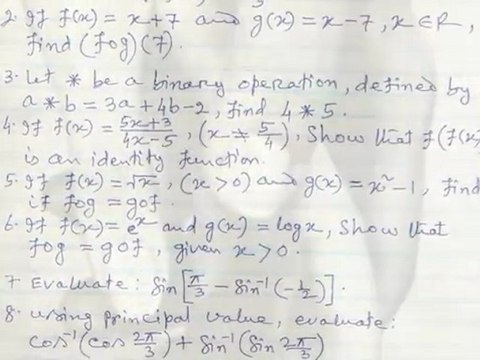 2. If f(x) = x+7 and g(x) = x-7, x ∈ R,
find (fog)(7).
3. Let * be a binary operation, defined by
a * b = 3a + 4b - 2, find 4 * 5.
4. If f(x) = (5x+3)/(4x-5), (x ≠ 5/4), Show that f(f(x)
is an identity function.
5. If f(x) = √x, (x > 0) and g(x) = x² - 1, find
if fog = gof.
6. If f(x) = eˣ and g(x) = log x, Show that
fog = gof, given x > 0.
7 Evaluate: Sin[π/3 - Sin⁻¹(-1/2)].
8. Using principal value, evaluate:
Cos⁻¹(Cos 2π/3) + Sin⁻¹(Sin 2π/3)